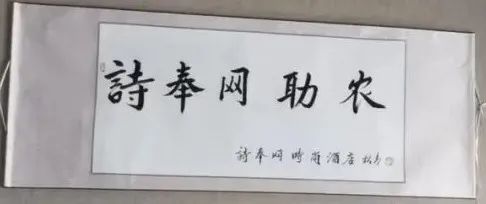 詩奉网助农
詩奉网時尚酒店